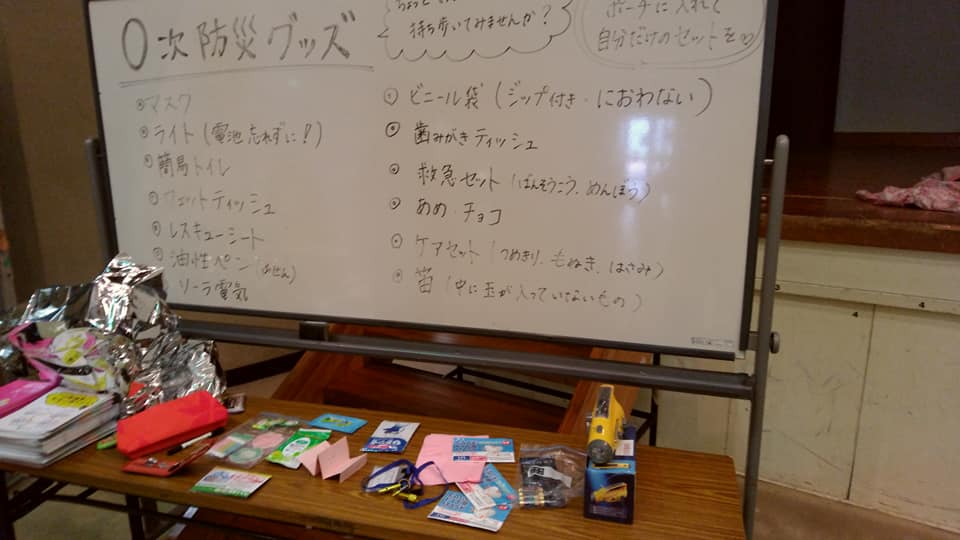 0次防災グッズ
持ち歩いてみませんか?
ポーチに入れて
自分だけのセットを
マスク
ライト(電池忘れずに!)
簡易トイレ
ウェットティッシュ
レスキューシート
油性ペン
ソーラ電気
ビニール袋(ジップ付き・におわない)
歯みがきティッシュ
救急セット(ばんそうこう、めんぼう)
あめ・チョコ
ケアセット(つめきり、毛ぬき、はさみ)
笛(中に玉が入っていないもの)
4
4